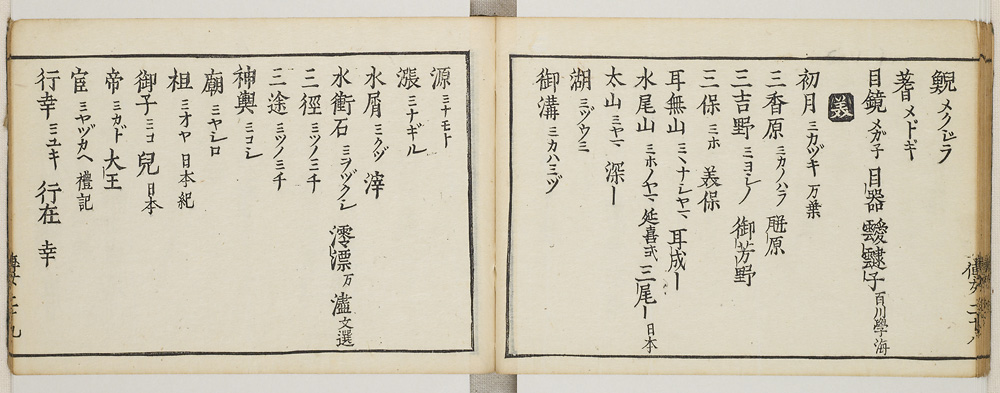 鯢 メクジラ
蓍 メドギ
目鏡 メガ子 目器 靉靆子 百川學海
美
初月 ミカヅキ 万葉
三香原 ミカノハラ 瓺原
三吉野 ミヨシノ 御芳野
三保 ミホ 美保
耳無山 ミヽナシヤマ 耳成ー
水尾山 ミホノヤマ 延喜式 三尾ー 日本
太山 ミヤマ 深ー
湖 ミヅウミ
御溝 ミカハミヅ
源 ミナモト
漲 ミナギル
水屑 ミクヅ 滓
水衝石 ミヲヅクシ 澪漂 万 瀘 文選
三徑 ミツノミチ
三途 ミツノミチ
神輿 ミコシ
廟 ミヤシロ
祖 ミオヤ 日本紀
御子 ミコ 兒 日本
帝 ミカド 大王
宦 ミヤヅカヘ 禮記
行幸 ミユキ 行在 幸